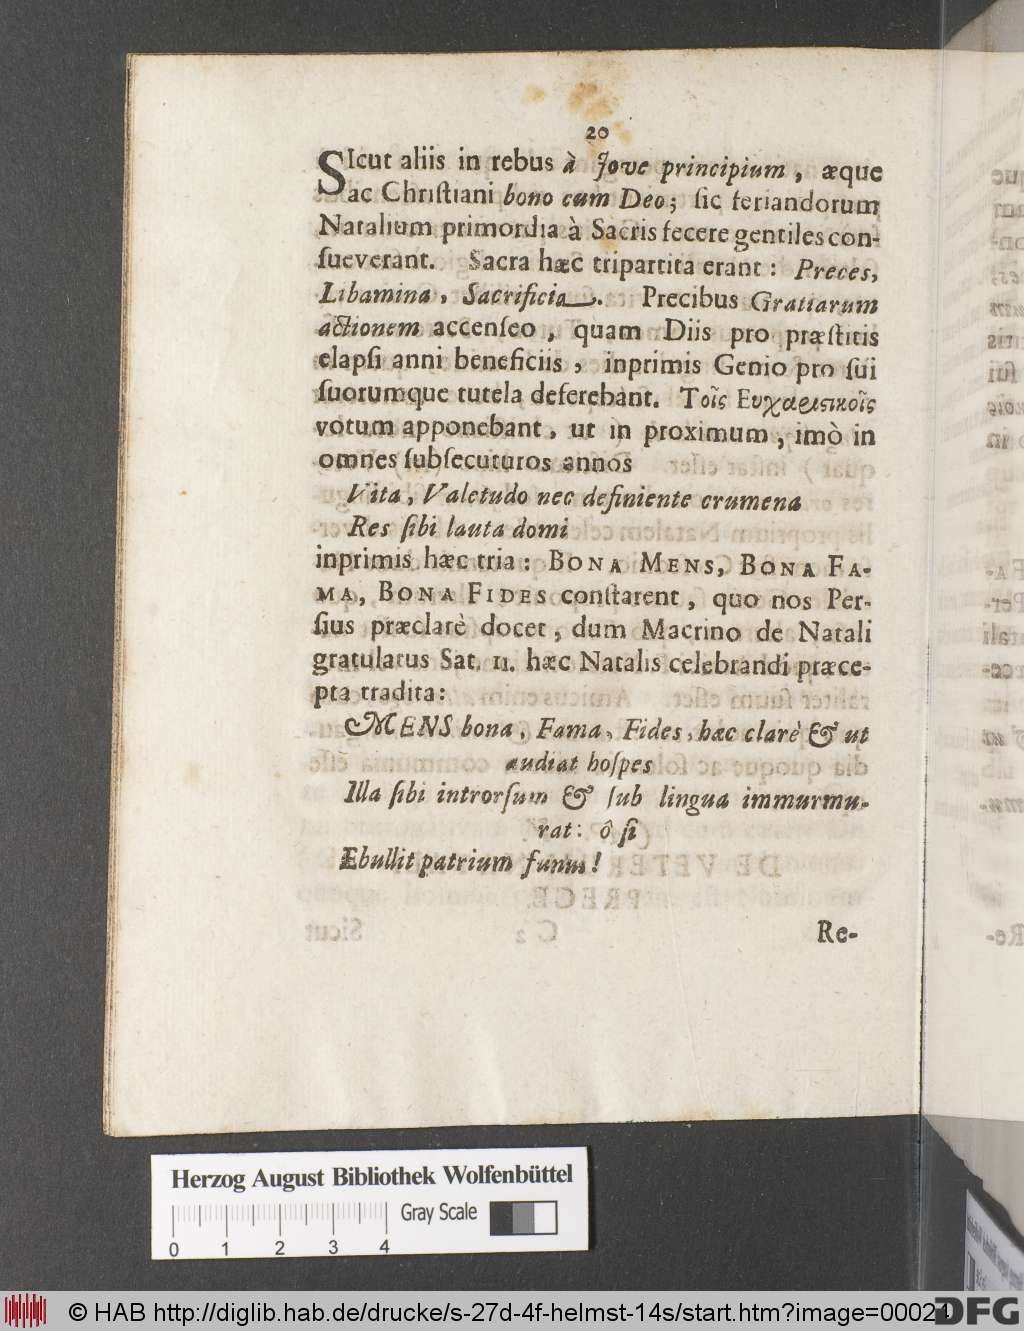 20
SIcut aliis in rebus à Jove principium, æque
ac Chriſtiani bono cum Deo; ſic feriandorum
Natalium primordia à Sacris fecere gentiles con-
ſueverant. Sacra hæc tripartita erant: Preces,
Libamina, Sacrificia. Precibus Gratiarum
actionem accenſeo, quam Diis pro præſtitis
elapſi anni beneficiis, inprimis Genio pro ſui
ſuorumque tutela deferebant. Τοῖς Ευχαριστικοῖς
votum apponebant, ut in proximum, imò in
omnes ſubſecuturos annos
Vita, Valetudo nec definiente crumena
Res ſibi lauta domi
inprimis hæc tria: BONA MENS, BONA FA-
MA, BONA FIDES conſtarent, quo nos Per-
ſius præclarè docet, dum Macrino de Natali
gratulatus Sat. II. hæc Natalis celebrandi præce-
pta tradita:
MENS bona, Fama, Fides, hæc clarè & ut
audiat hoſpes
Illa ſibi introrſum & ſub lingua immurmu-
rat: ô ſi
Ebullit patrium funus!
Re-
Herzog August Bibliothek Wolfenbüttel
Gray Scale
0 1 2 3 4
© HAB http://diglib.hab.de/drucke/s-27d-4f-helmst-14s/start.htm?image=00024
DFG